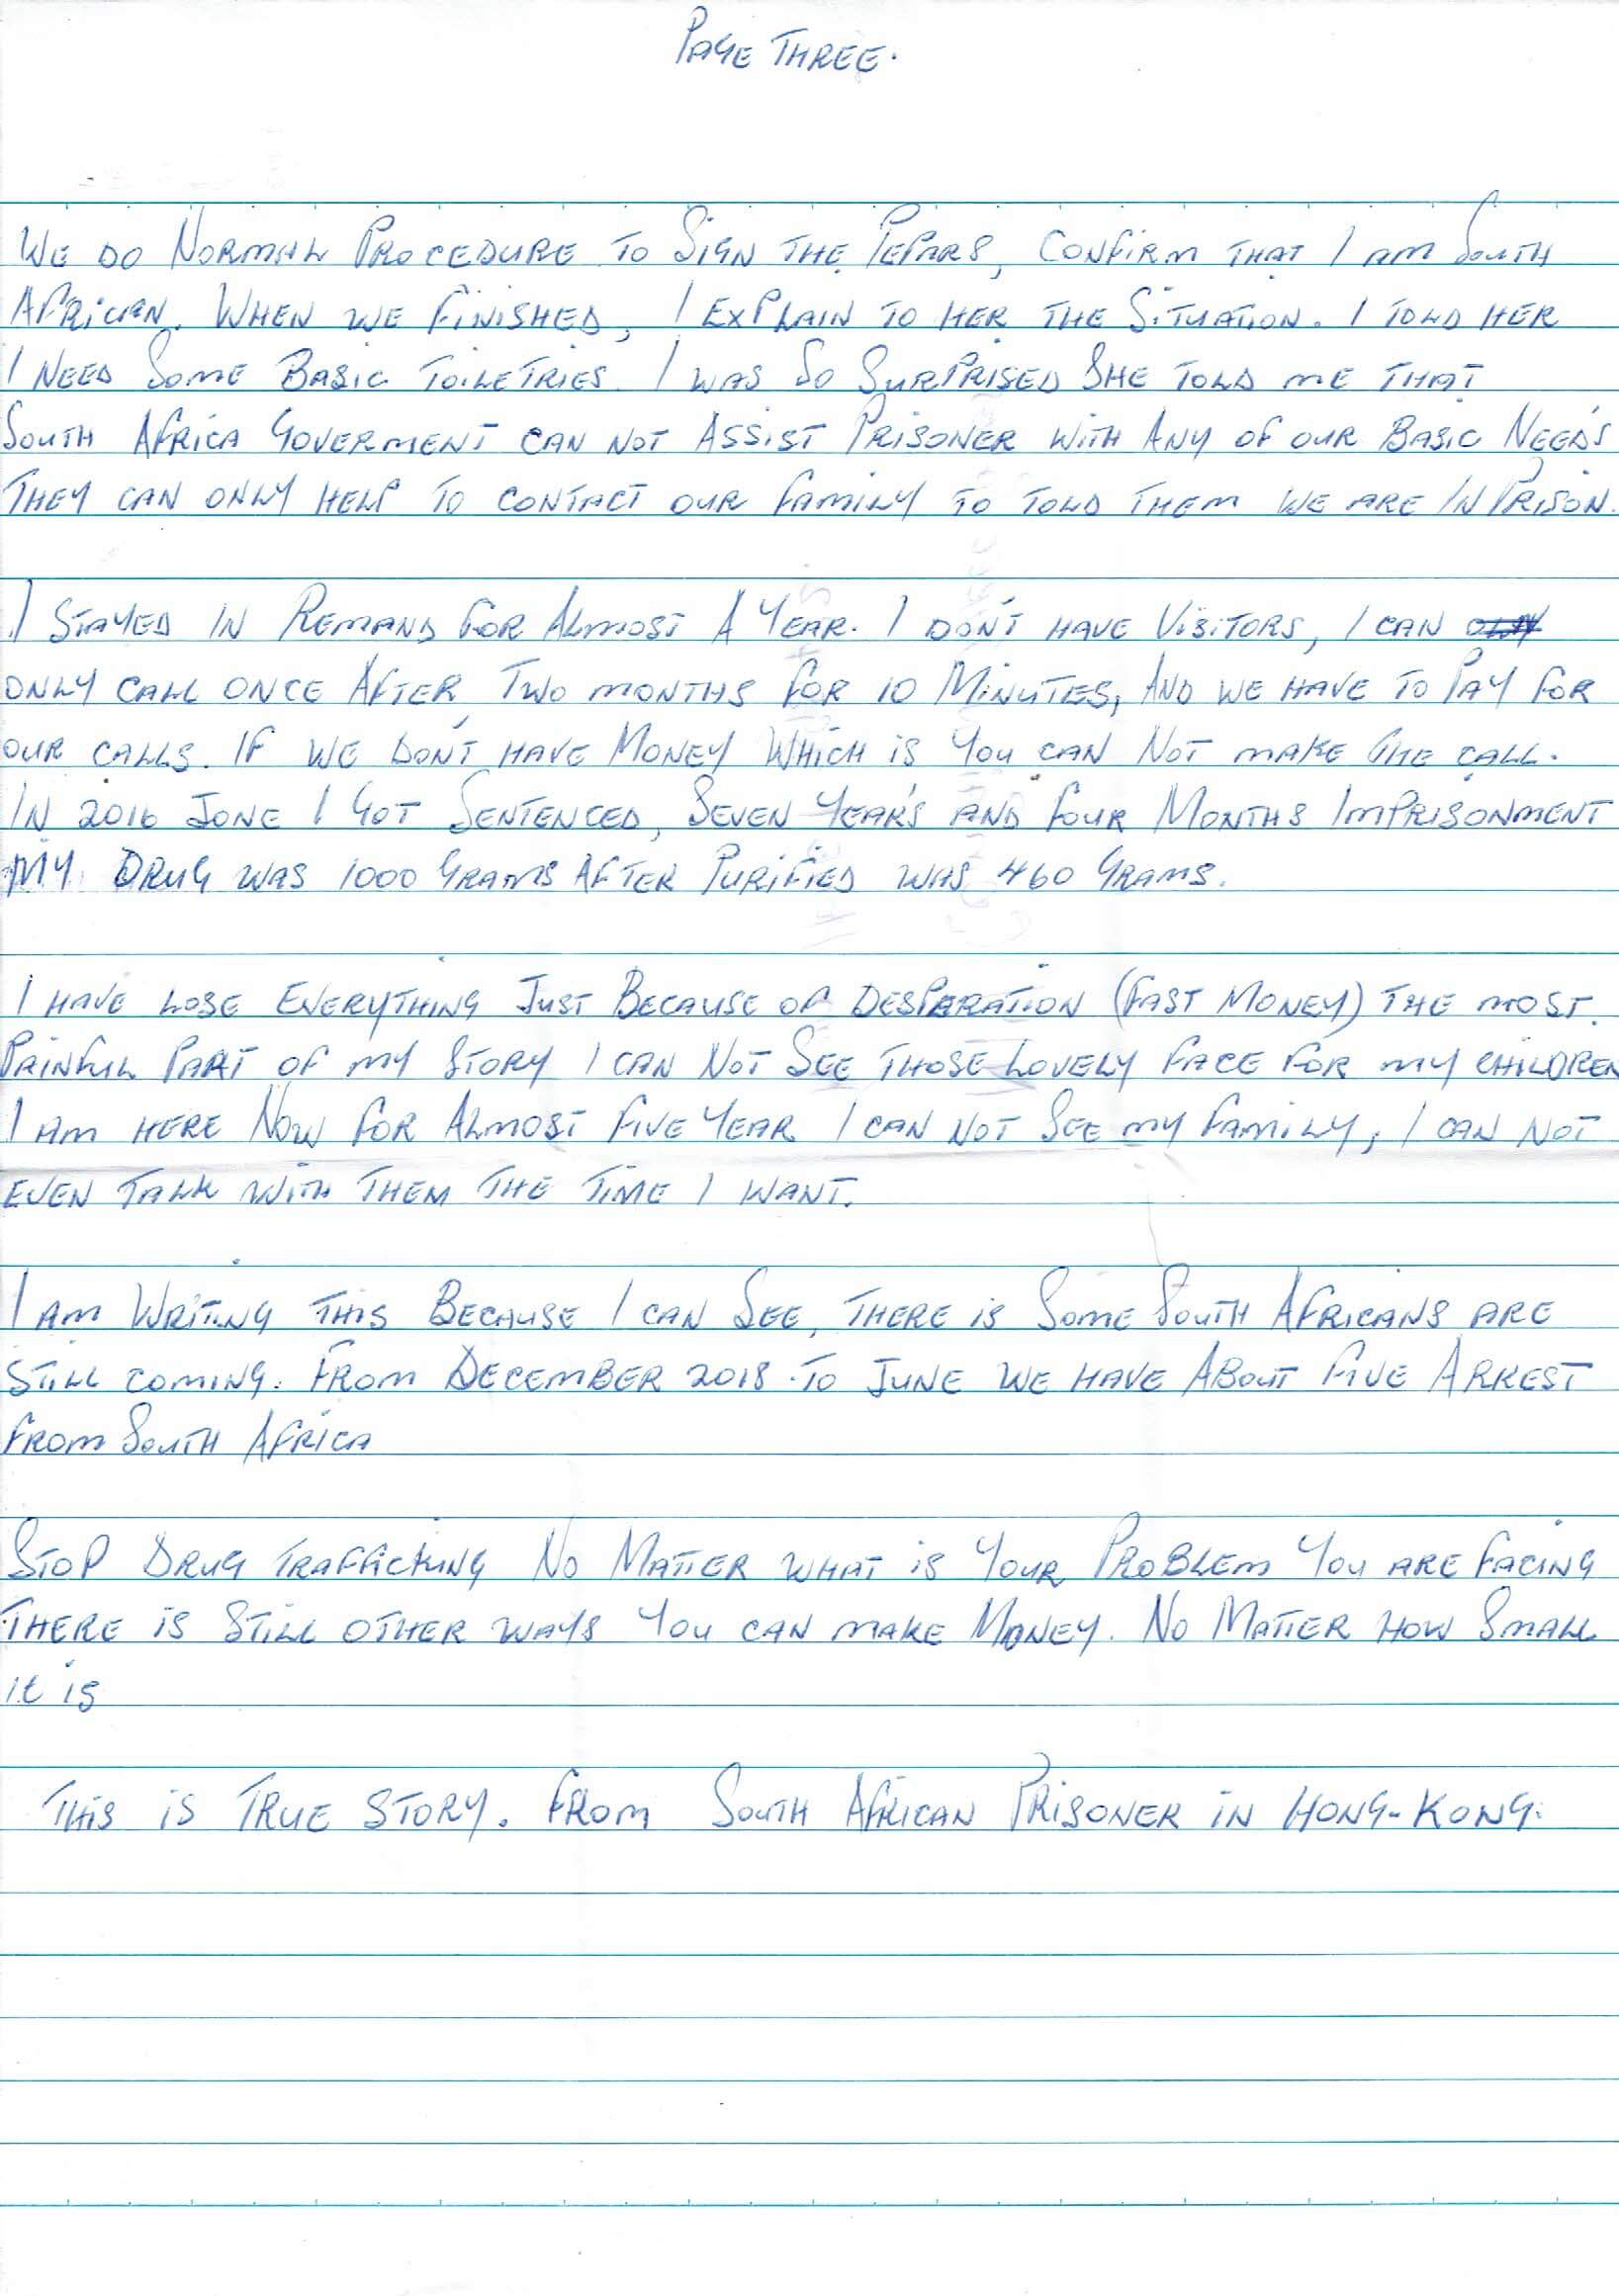 PAGE THREE.
WE DO NORMAL PROCEDURE TO SIGN THE PEPARS, CONFIRM THAT I AM SOUTH
AFRICAN. WHEN WE FINISHED, I EXPLAIN TO HER THE SITUATION. I TOLD HER
I NEED SOME BASIC TOILETRIES. I WAS SO SURPRISED SHE TOLD ME THAT
SOUTH AFRICA GOVERMENT CAN NOT ASSIST PRISONER WITH ANY OF OUR BASIC NEED'S
THEY CAN ONLY HELP TO CONTACT OUR FAMILY TO TOLD THEM WE ARE IN PRISON.
I STAYED IN REMAND FOR ALMOST A YEAR. I DON'T HAVE VISITORS, I CAN
ONLY CALL ONCE AFTER TWO MONTHS FOR 10 MINUTES, AND WE HAVE TO PAY FOR
OUR CALLS. IF WE DON'T HAVE MONEY WHICH IS YOU CAN NOT MAKE THE CALL.
IN 2016 JONE I GOT SENTENCED, SEVEN YEAR'S AND FOUR MONTHS IMPRISONMENT
MY DRUG WAS 1000 GRAMS AFTER PURIFIED WAS 460 GRAMS.
I HAVE LOSE EVERYTHING JUST BECAUSE OF DESPERATION (FAST MONEY) THE MOST.
PAINFUL PART OF MY STORY I CAN NOT SEE THOSE LOVELY FACE FOR MY CHILDREN
I AM HERE NOW FOR ALMOST FIVE YEAR I CAN NOT SEE MY FAMILY, I CAN NOT
EVEN TALK WITH THEM THE TIME I WANT.
I AM WRITING THIS BECAUSE I CAN SEE, THERE IS SOME SOUTH AFRICANS ARE
STILL COMING. FROM DECEMBER 2018 TO JUNE WE HAVE ABOUT FIVE ARREST
FROM SOUTH AFRICA
STOP DRUG TRAFFICKING NO MATTER WHAT IS YOUR PROBLEM YOU ARE FACING
THERE IS STILL OTHER WAYS YOU CAN MAKE MONEY. NO MATTER HOW SMALL
it is
THIS IS TRUE STORY. FROM SOUTH AFRICAN PRISONER IN HONG-KONG.